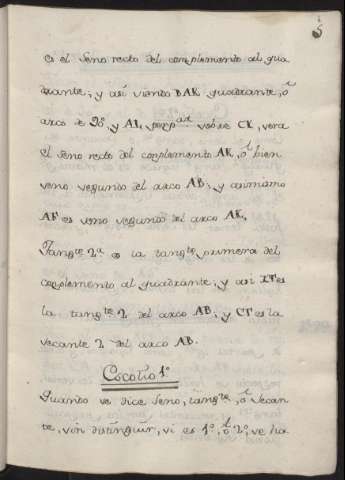 5
es el Seno recto del complemento al qua
drante, y así siendo DAK quadrante, ô
arco de 90, y AI, perp.ar sobre CK, sera
el seno recto del complemento AK, ô bien
seno segundo del arco AB, y asimismo
AF es seno segundo del arco AK.
Tang.te 2.a es la tang.te primera del
complemento al quadrante, y asi KT es
la tang.te 2 del arco AB, y CT es la
secante 2 del arco AB.
Escolio 1º
Quando se dice Seno, tang.te, ô Secan
te, sin distinguir, si es 1º, ô 2º, se ha